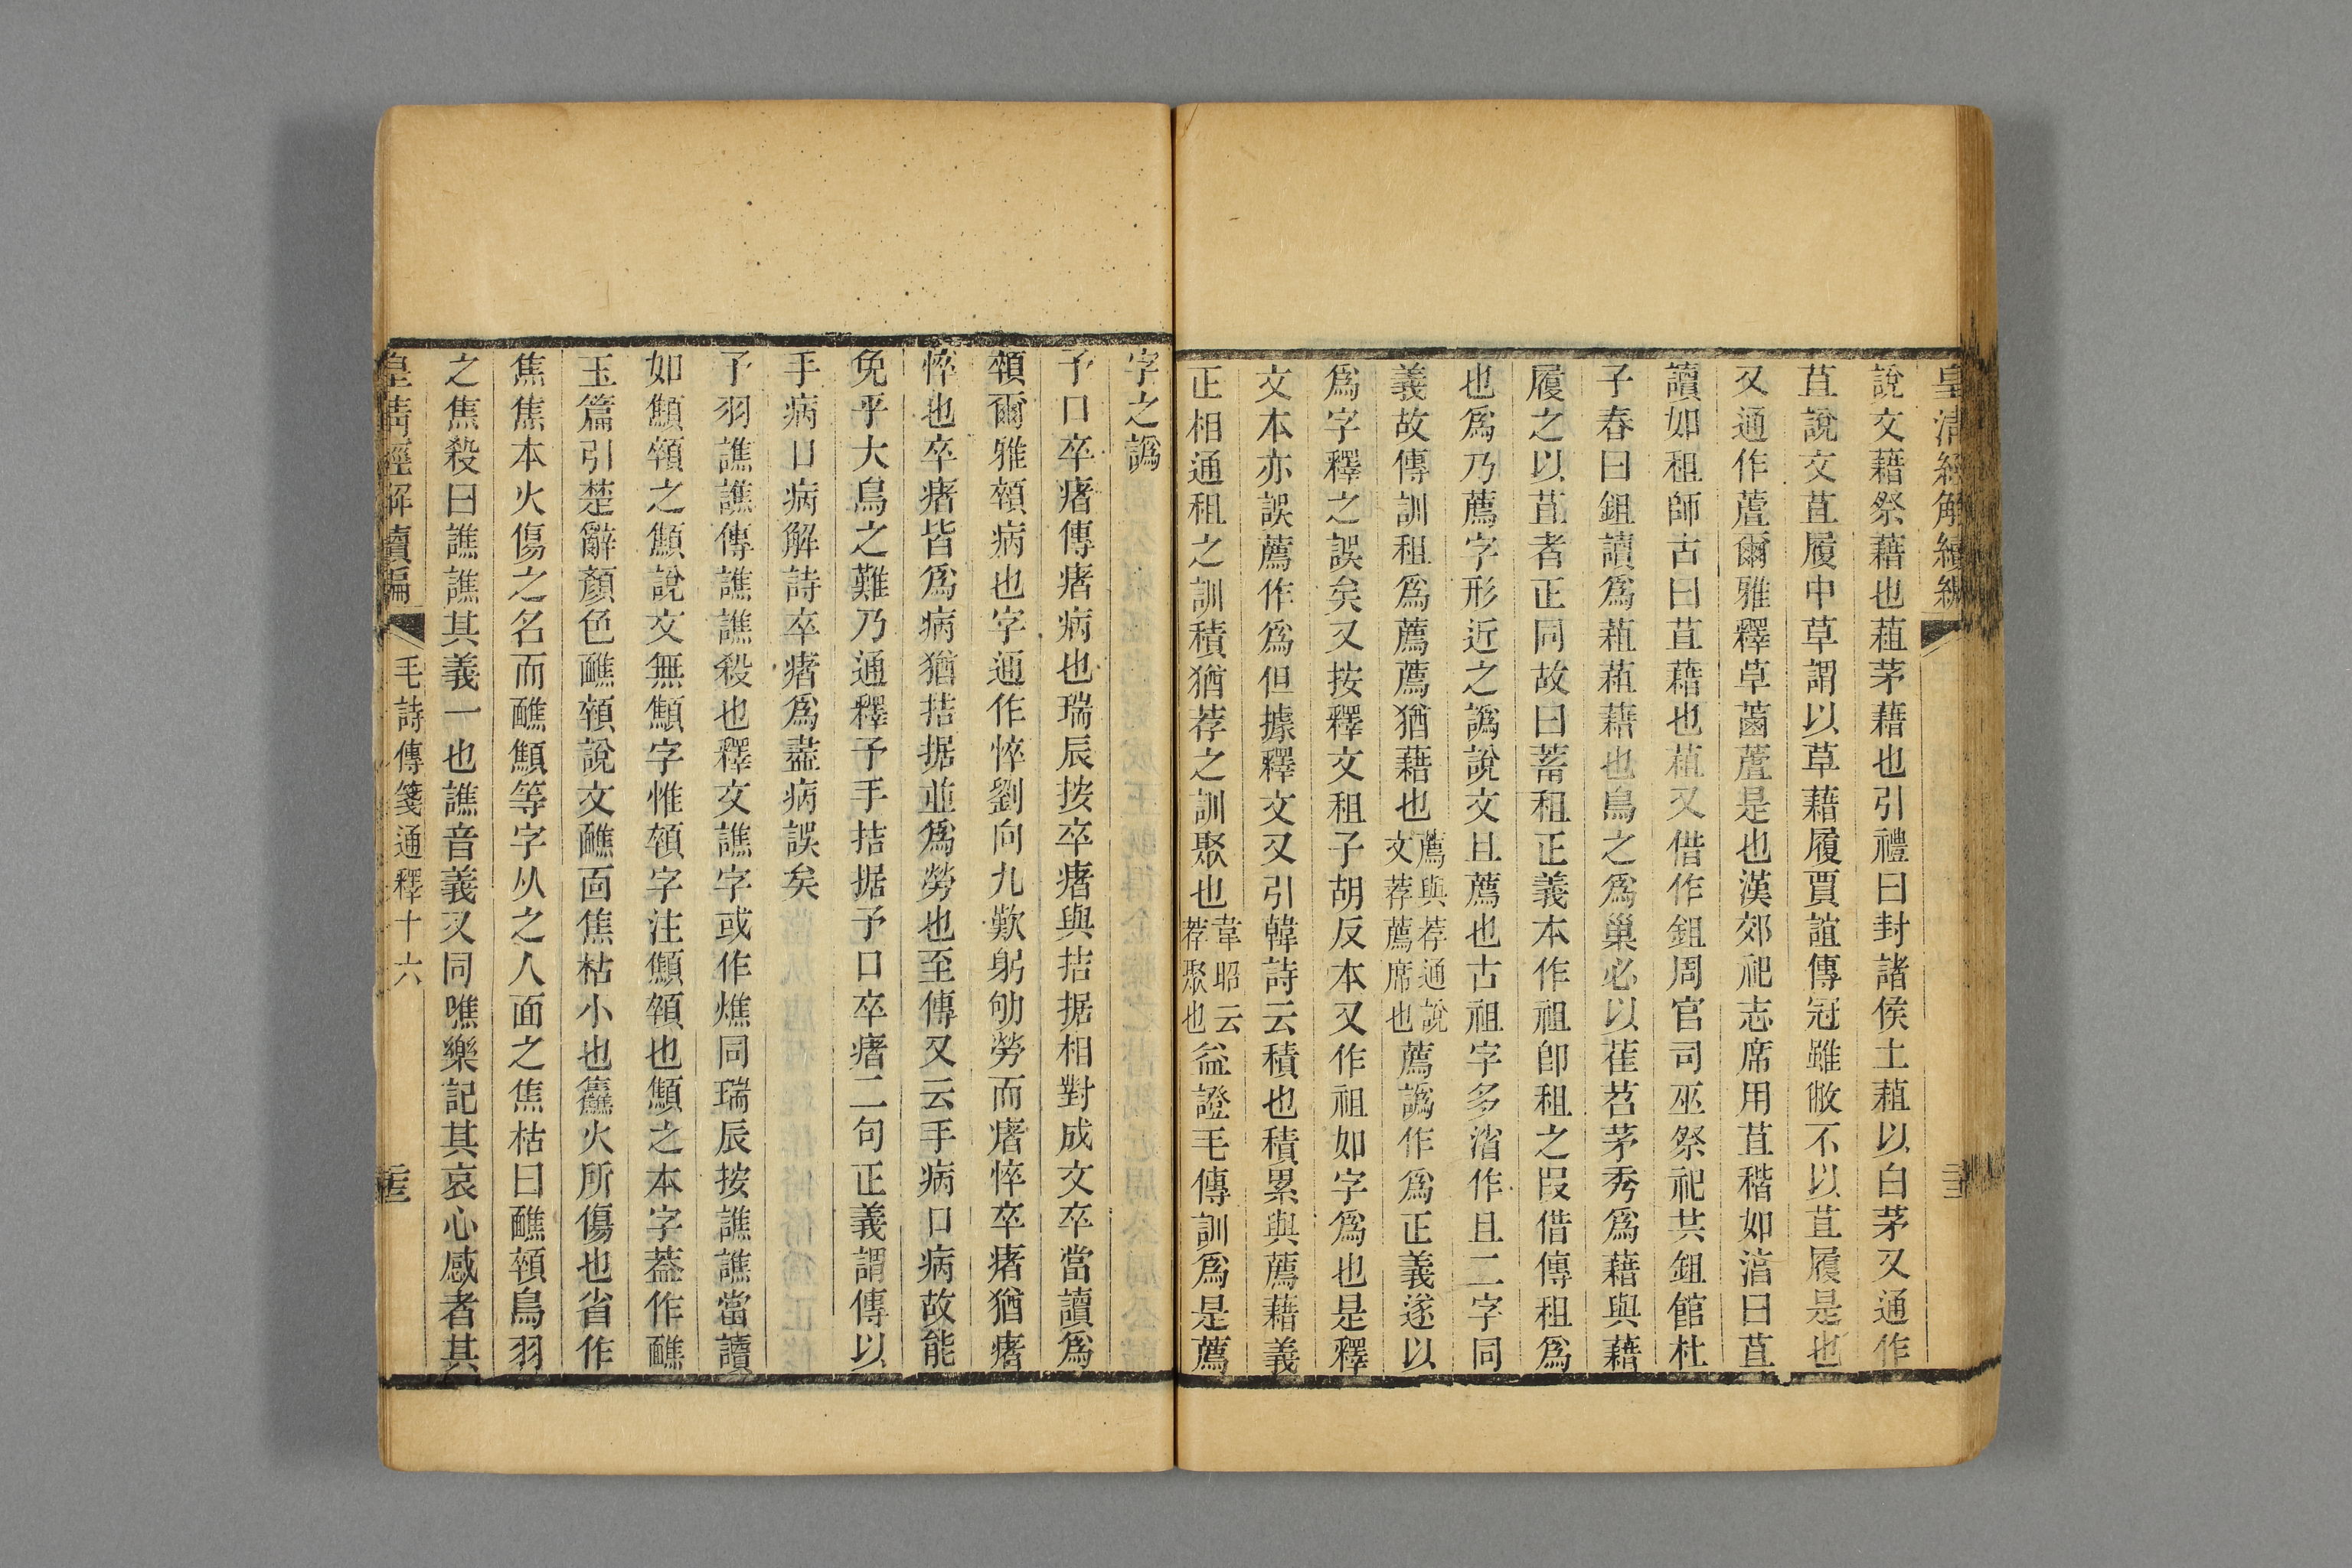 皇清經解續編
說文藉祭藉也蒩茅藉也引禮曰封諸侯土蒩以白茅又通作
苴說文苴履中草謂以草藉履賈誼傳冠雖敝不以苴履是也
又通作蔖爾雅釋草菡蔖是也漢郊祀志席用苴稭如湻曰苴
讀如租師古曰苴藉也蒩又借作鉏周官司巫祭祀共鉏館杜
子春曰鉏讀爲蒩蒩藉也鳥之爲巢必以萑苕茅秀爲藉與藉
履之以苴者正同故曰蓄租正義本作祖卽租之叚借傳租爲
也爲乃薦字形近之譌說文且薦也古祖字多渻作且二字同
義故傳訓租爲薦薦猶藉也薦與荐通說文荐薦席也薦譌作爲正義遂以
爲字釋之誤矣又按釋文租子胡反本又作祖如字爲也是釋
文本亦誤薦作爲但據釋文又引韓詩云積也積累與薦藉義
正相通租之訓積猶荐之訓聚也韋昭云荐聚也益證毛傳訓爲是薦
字之譌
予口卒瘏傳瘏病也瑞辰按卒瘏與拮据相對成文卒當讀爲
顇爾雅顇病也字通作悴劉向九歎躬劬勞而瘏悴卒瘏猶瘏
悴也卒瘏皆爲病猶拮据並爲勞也至傳又云手病口病故能
免乎大鳥之難乃通釋予手拮据予口卒瘏二句正義謂傳以
手病口病解詩卒瘏爲盡病誤矣
予羽譙譙傳譙譙殺也釋文譙字或作燋同瑞辰按譙譙當讀
如顦顇之顦說文無顦字惟顇字注顦顇也顦之本字葢作醮
玉篇引楚辭顏色醮顇說文醮面焦枯小也𤓪火所傷也省作
焦焦本火傷之名而醮顦等字从之人面之焦枯曰醮顇鳥羽
之焦殺曰譙譙其義一也譙音義又同噍樂記其哀心感者其
皇清經解續編 毛詩傳箋通釋十六